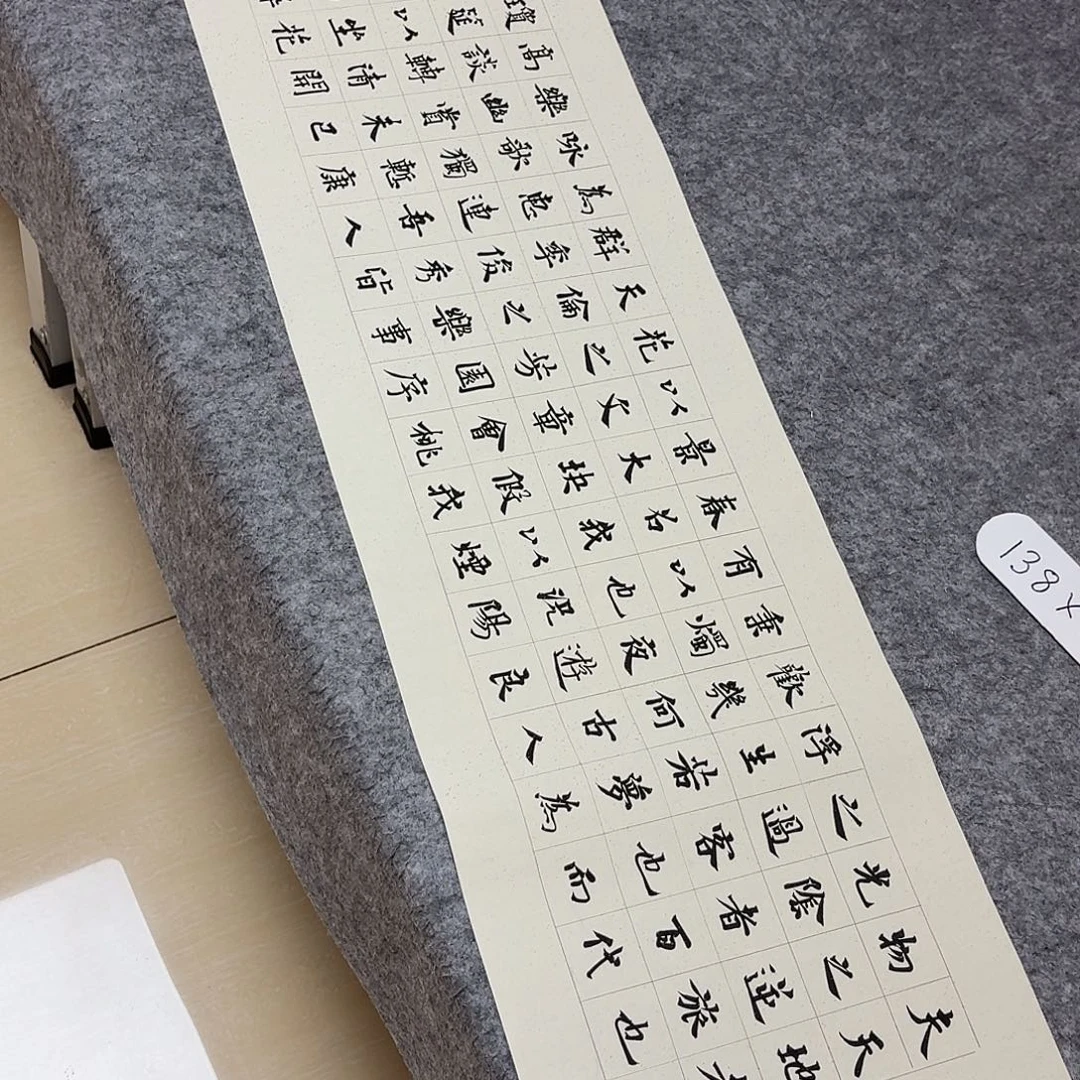 夫天地
物之逆旅也
光陰者百代
之過客也而
浮生若夢為
歡幾何古人
秉燭夜遊良
有以也況陽
春召我以煙
景大塊假我
以文章會桃
花之芳園序
天倫之樂事
群季俊秀皆
為惠連吾人
咏歌獨慙康
樂幽賞未已
高談轉清開
瓊筵以坐花
138×